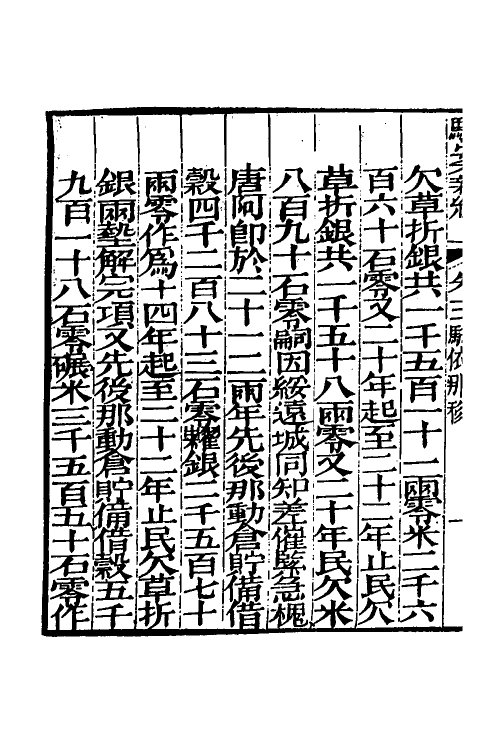 欠草折銀共一千五百一十一兩零米二千六
百六十石零又二十年起至二十二年止民欠
草折銀共一千五十八兩零又二十年民欠米
八百九十石零嗣因綏遠城同知差催緊急槐
唐阿卽於二十一二兩年先後那動倉貯備借
穀四千二百八十三石零糶銀二千五百七十
兩零作為十四年起至二十二年止民欠草折
銀兩墊解完項又先後那動倉貯備借穀五千
九百一十八石零碾米三千五百五十石零作